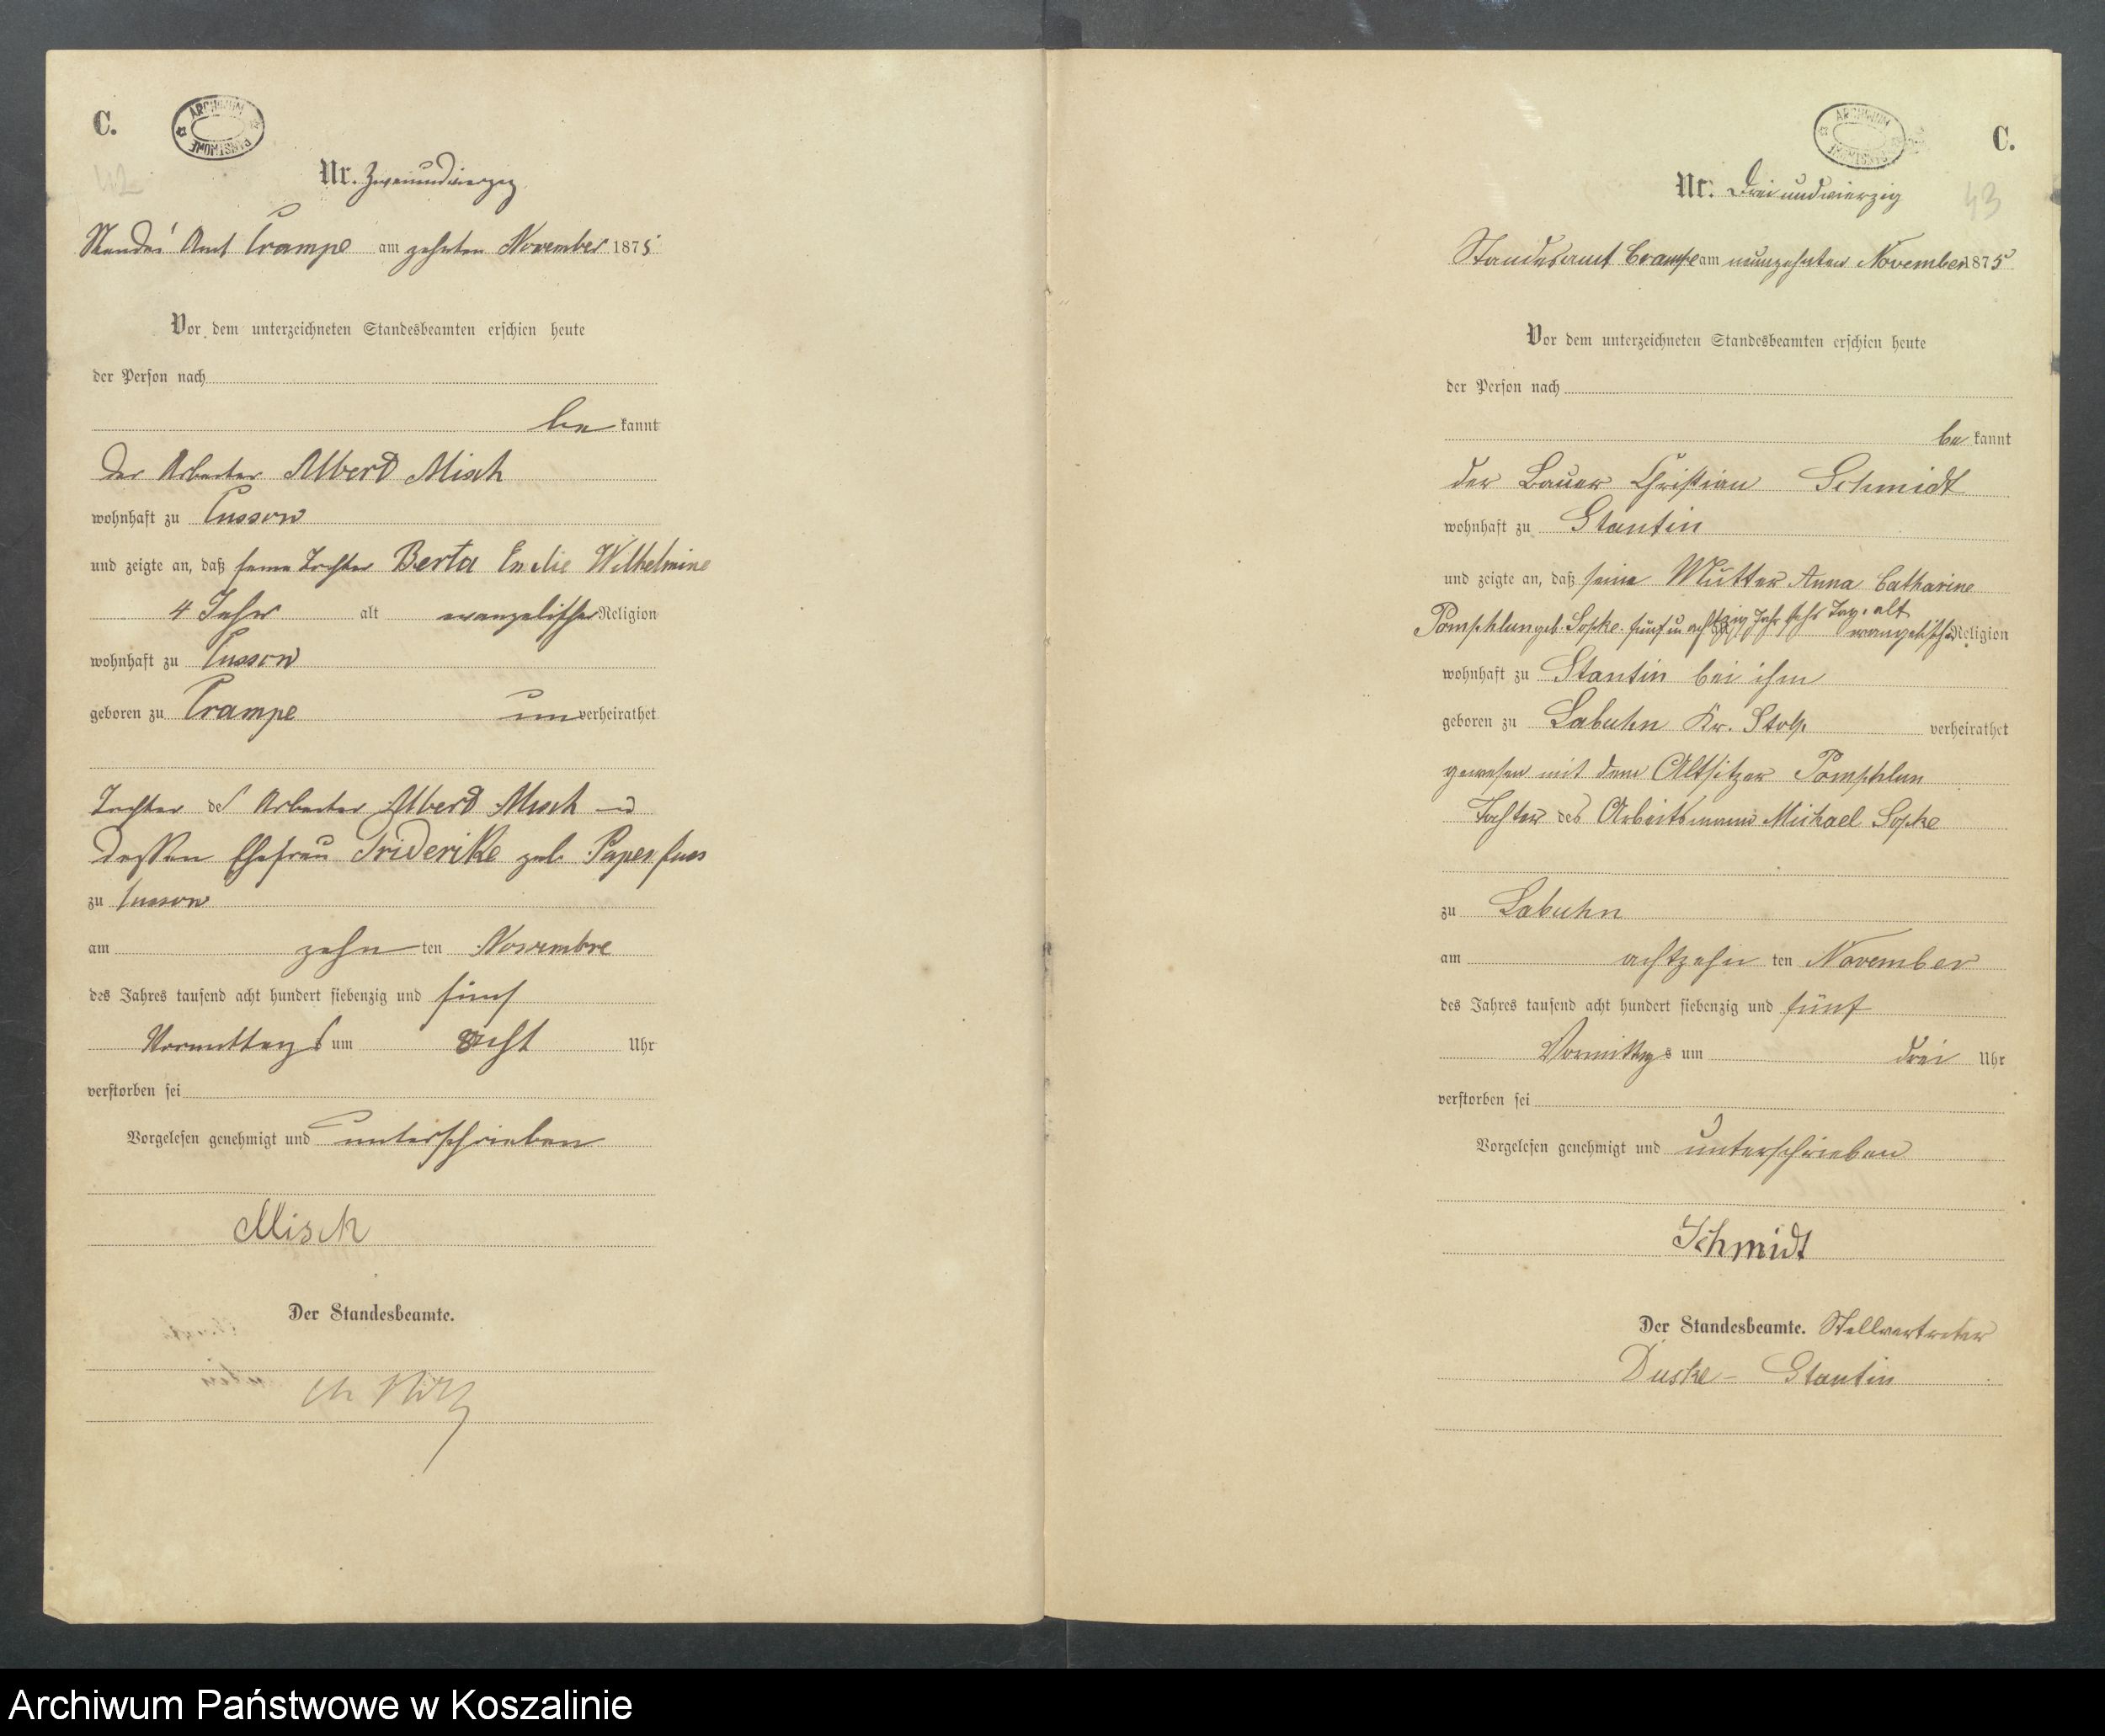 C.
ARCHIWUM PAŃSTWOWE
42
Nr. Zweiundvierzig
Standes Amt Crampe am zehnten November 1875
Vor dem unterzeichneten Standesbeamten erschien heute
der Person nach
be kannt
der Arbeiter Albert Misch
wohnhaft zu Cussow
und zeigte an, daß seine Tochter Berta Emilie Wilhelmine
4 Jahr alt evangelischer Religion
wohnhaft zu Cussow
geboren zu Crampe unverheirathet
Tochter des Arbeiter Albert Misch
dessen Ehefrau Friderike geb. Papenfuss
zu Cussow
am zehn ten Novembre
des Jahres tausend acht hundert siebenzig und fünf
Vormittags um acht Uhr
verstorben sei
Vorgelesen genehmigt und unterschrieben
Misch
Der Standesbeamte.
C.
ARCHIWUM PAŃSTWOWE
43
Nr. Dreiundvierzig
Standesamt Crampe am neunzehnten November 1875
Vor dem unterzeichneten Standesbeamten erschien heute
der Person nach
be kannt
der Bauer Christian Schmidt
wohnhaft zu Stantin
und zeigte an, daß seine Mutter Anna Catharine
Pomphlun geb. Sopke fünf u achtzig Jahr sechs Tag. alt
evangelischer Religion
wohnhaft zu Stantin bei ihm
geboren zu Labuhn Kr. Stolp verheirathet
gewesen mit dem Altsitzer Pomphlun
Tochter des Arbeitsmann Michael Sopke
zu Labuhn
am achtzehn ten November
des Jahres tausend acht hundert siebenzig und fünf
Vormittags um drei Uhr
verstorben sei
Vorgelesen genehmigt und unterschrieben
Schmidt
Der Standesbeamte. Stellvertreter
Duske - Stantin
Archiwum Państwowe w Koszalinie